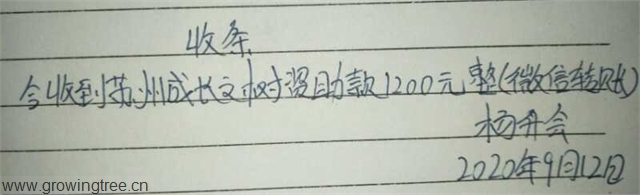 收条
今收到苏州成长文树资助款1200元整(微信转账)
杨开会
2020年9月12日
www.growingtree.cn